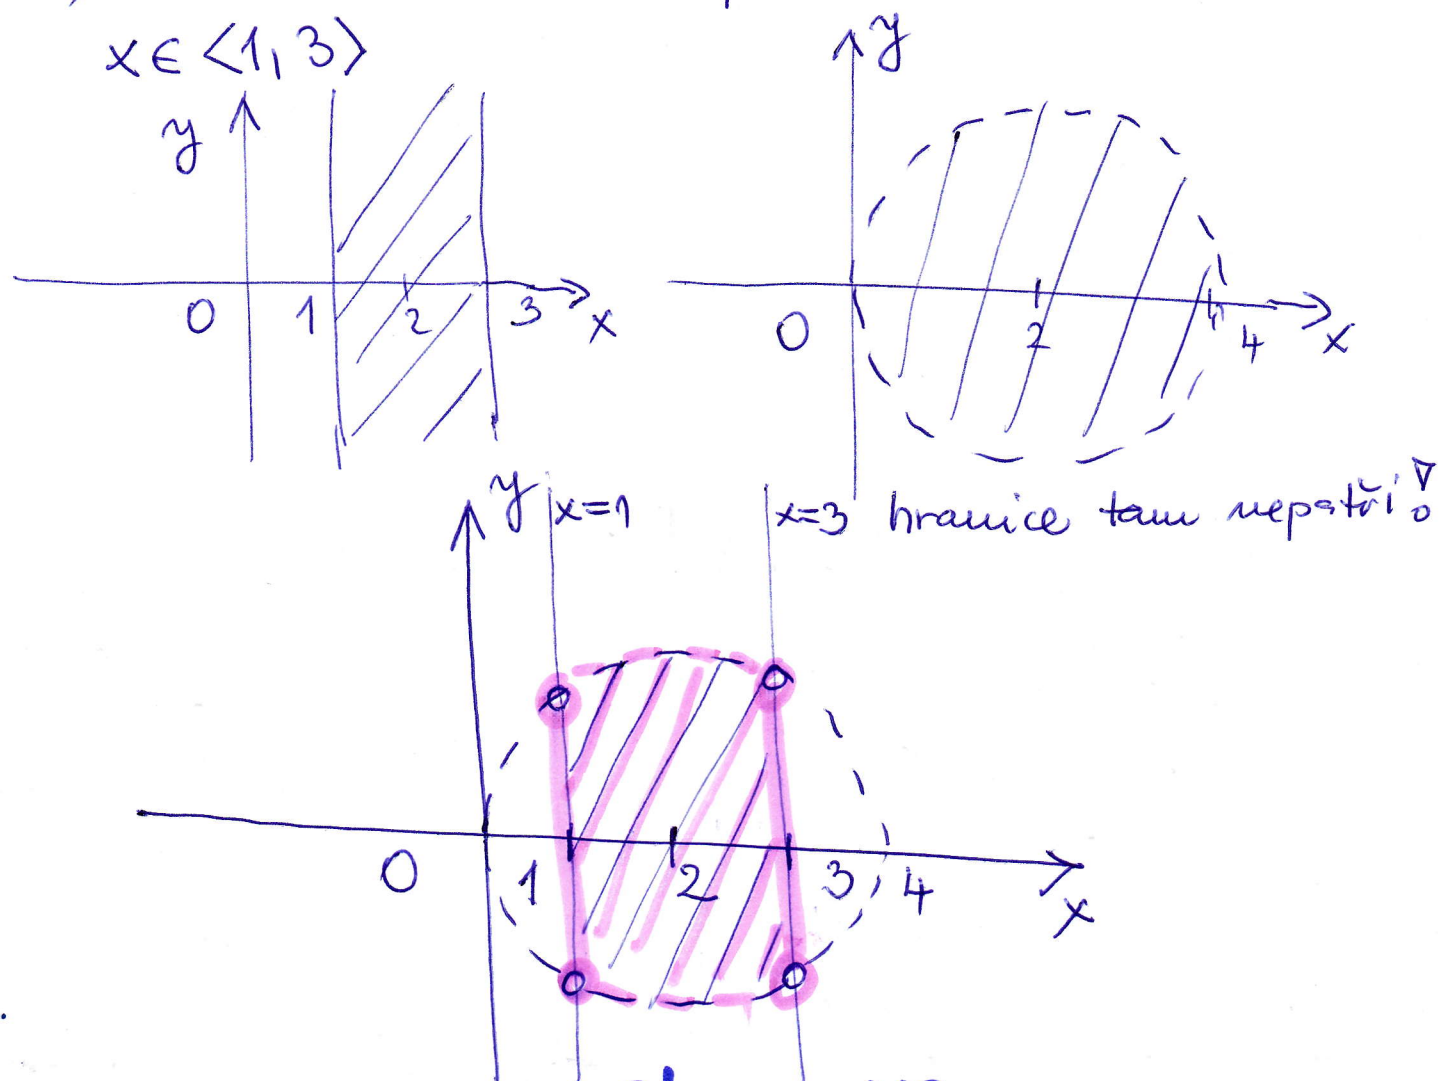 x ∈ ⟨1, 3⟩
y
0 1 2 3 x
y
0 2 4 x
hranice tam nepatří!
y x=1 x=3
0 1 2 3 4 x